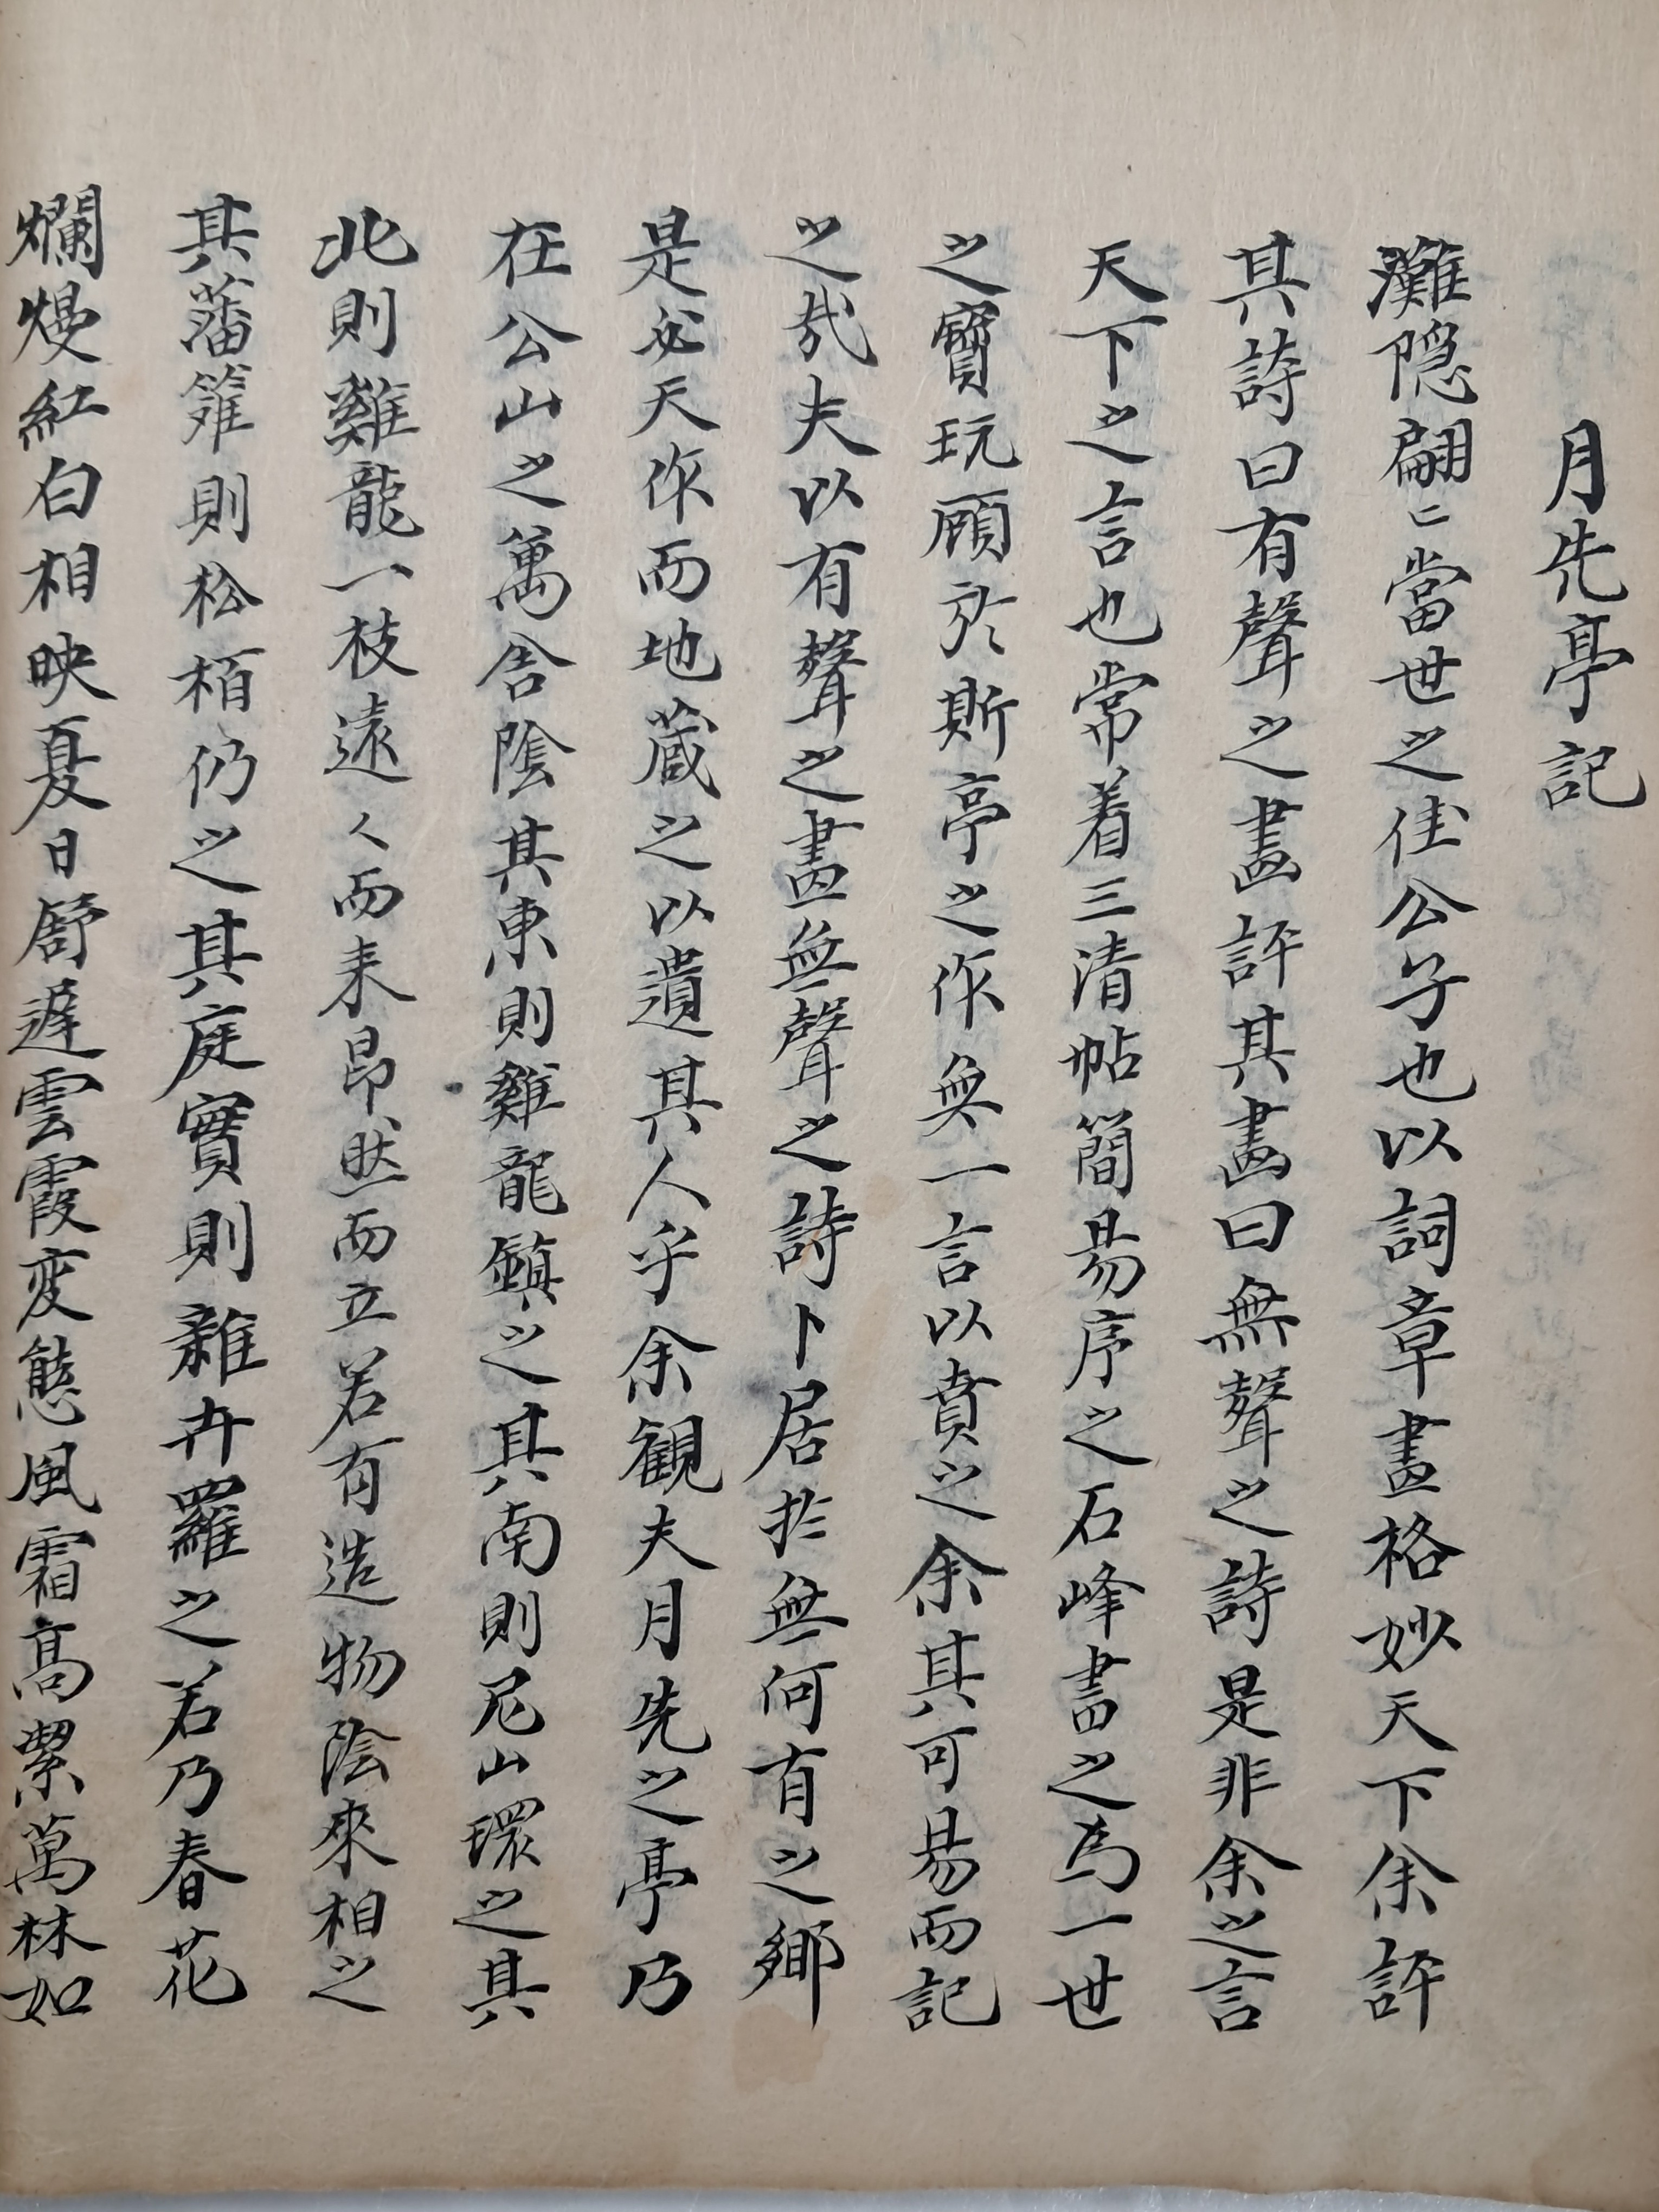 月先亭記
灘隠翩〻當世之佳公子也以詞章畫格妙天下余評
其詩曰有聲之畫評其畫曰無聲之詩是非余之言
天下之言也常着三清帖簡昜序之石峰書之為一世
之寶玩顧於斯亭之作無一言以賁之余其可昜而記
之哉夫以有聲之畫無聲之詩卜居於無何有之鄉
是必天作而地蔵之以遺其人乎余観夫月先之亭乃
在公山之萬舎陰其東則雞龍鎮之其南則尼山環之其
北則雞龍一枝遠人而来昂然而立若有造物陰來相之
其藩籬則松栢仍之其庭實則雜卉羅之若乃春花
爛熳紅白相映夏日舒遲雲霞変態風霜高絜萬林如